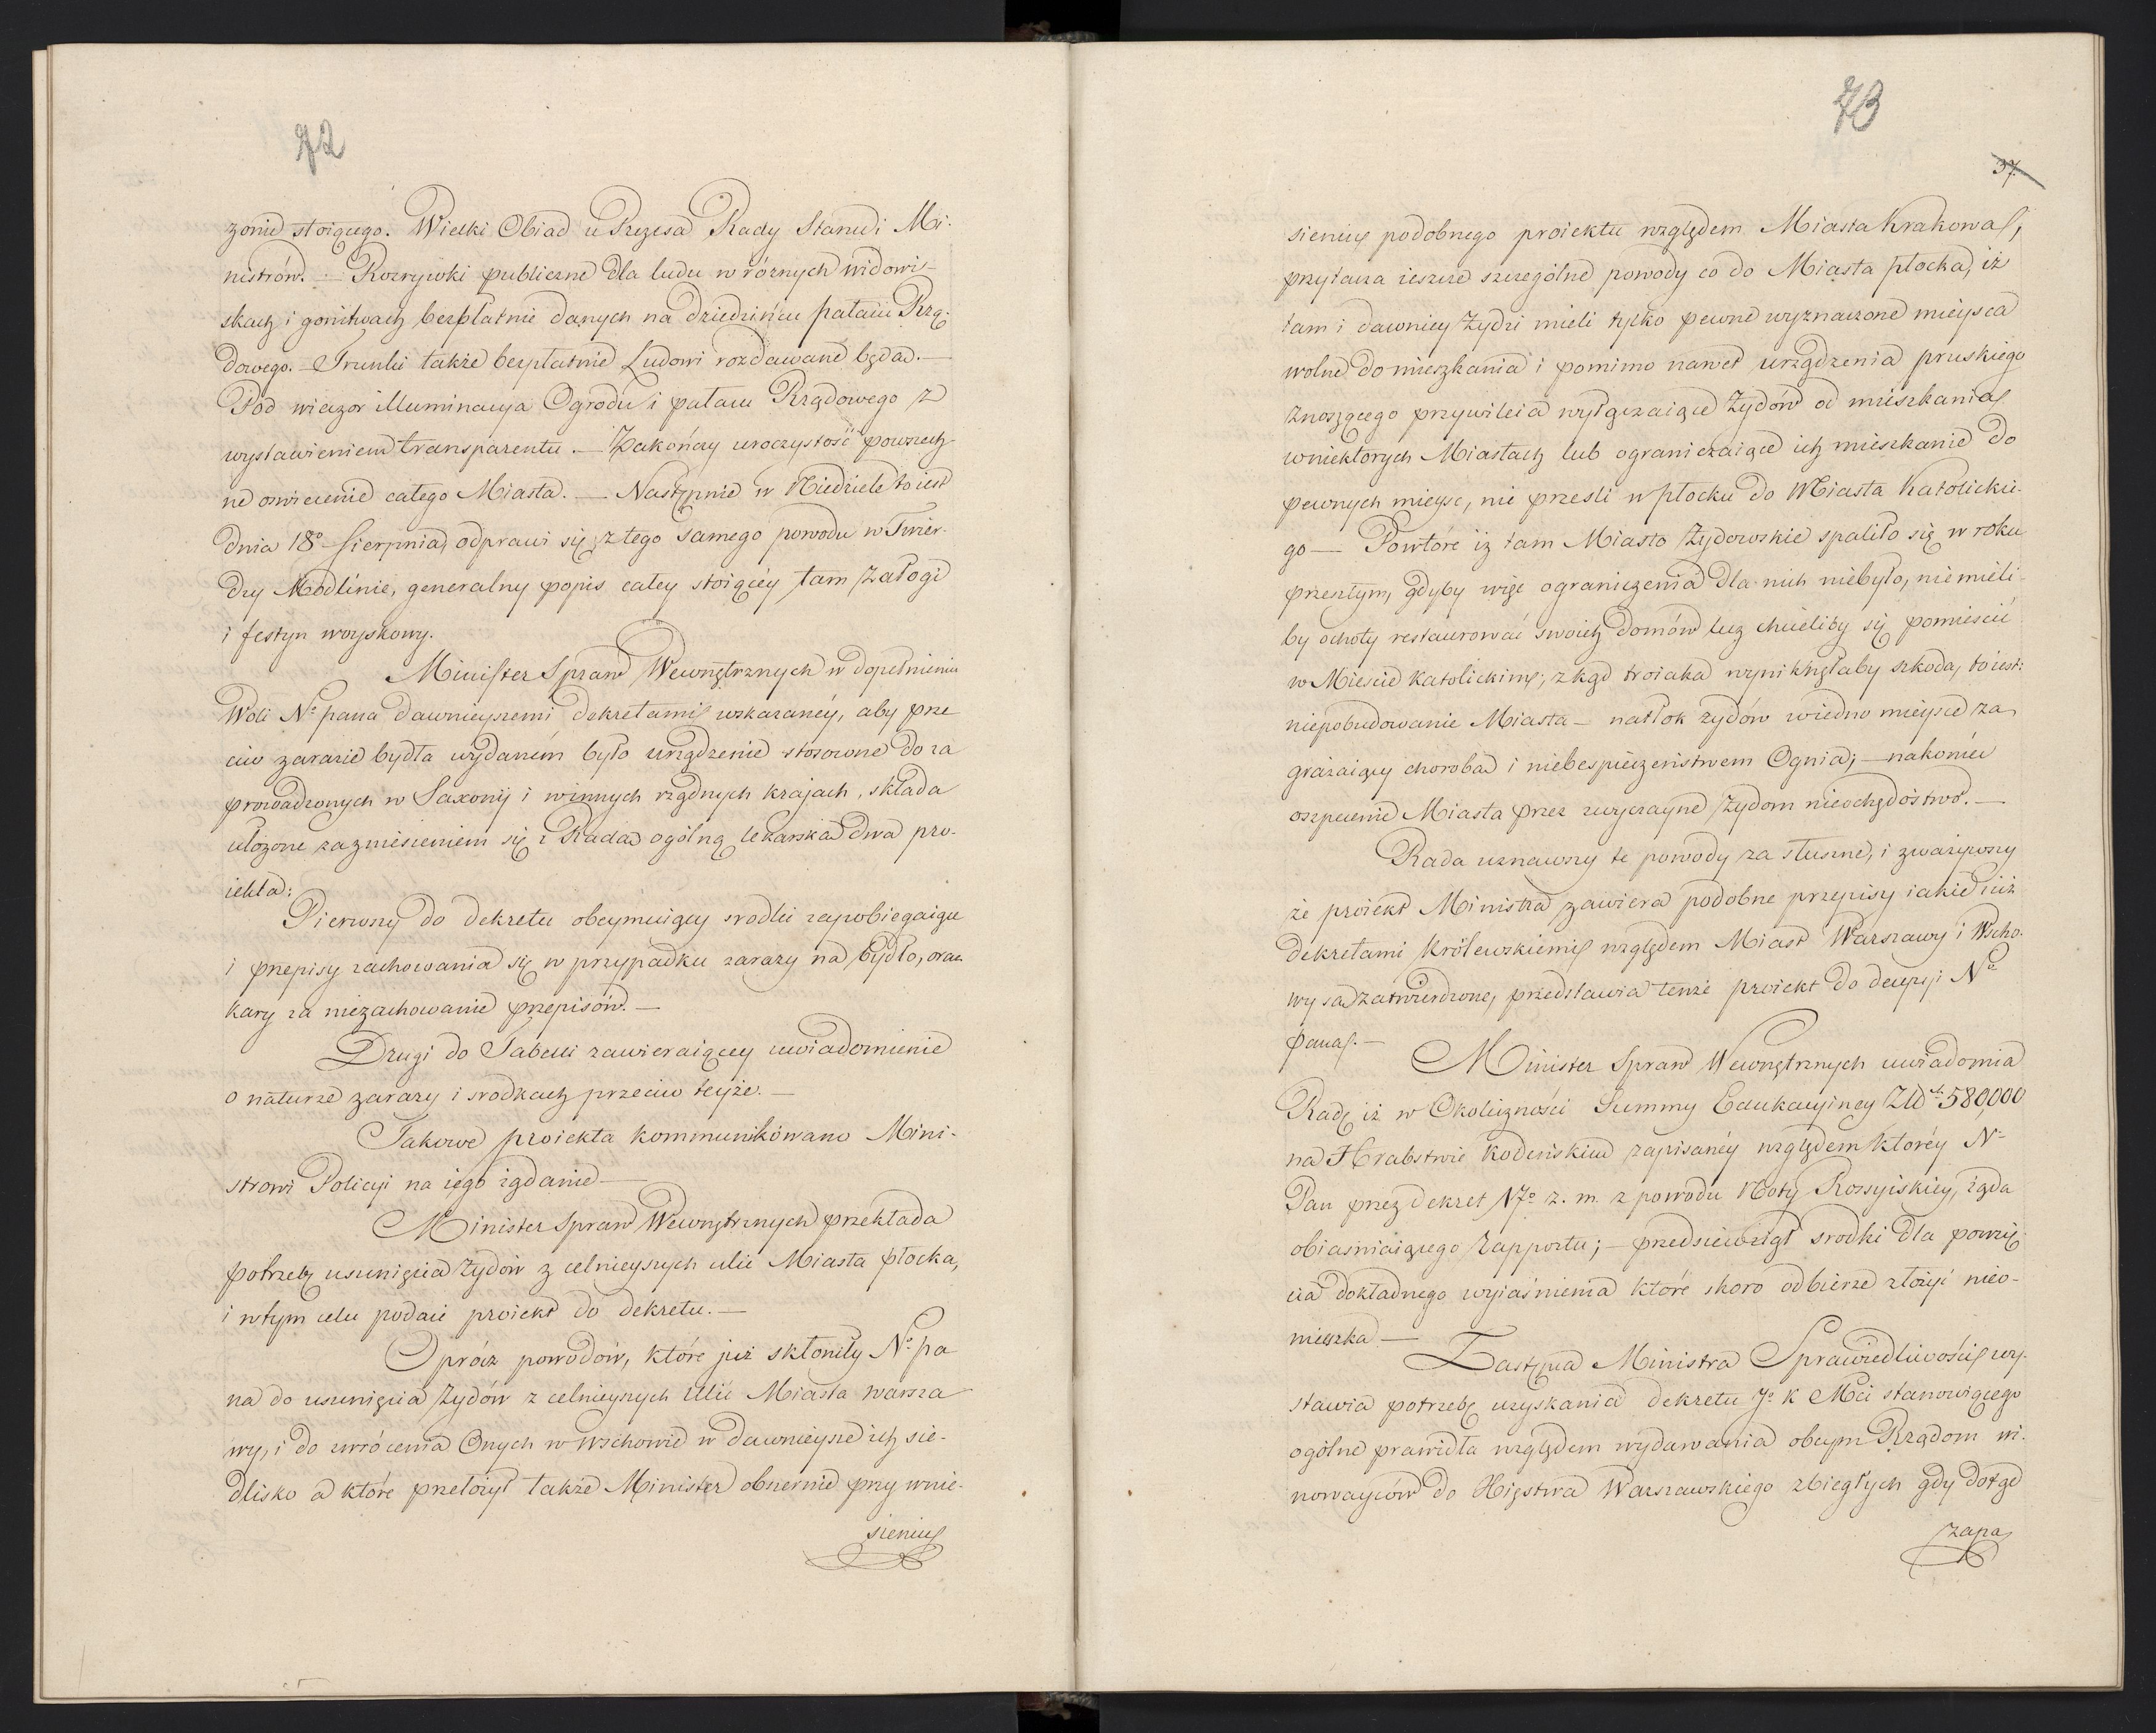 72
zonie stoiącego. Wielki Obiad u Prezesa Rady Stanu i Mi-
nistrów. — Rozrywki publiczne dla ludu w różnych widowi-
skach i gonitwach bezpłatnie danych na dziedzińcu pałacu Rzą-
dowego. — Trunki także bezpłatnie Ludowi rozdawane będą. —
Pod wieczor illuminacya Ogrodu i pałacu Rządowego z
wystawieniem transparentu. — Zakończy uroczystość powszech-
ne oswiecenie całego Miasta. — Następnie w Niedziele to iest
dnia 18º Sierpnia, odprawi się z tego samego powodu w Twier-
dzy Modlinie, generalny popis całey stoiącéy tam załogi
i festyn woyskowy.
Minister Spraw Wewnętrznych w dopełnieniu
Woli Nº pana dawnieyszemi dekretami wskazanéy, aby prze
ciw zarazie bydła wydaném było urządzenie stosowne do za
prowadzonych w Saxonij i w innych rządnych krajach, składa
ułożone za zniesieniem się z Radą ogólną lekarską dwa pro-
iekta:
Pierwszy do dekretu obeymuiący srodki zapobiegaiące
i przepisy zachowania się w przypadku zarazy na bydło, oraz
kary za niezachowanie przepisów. —
Drugi do Tabelli zawieraiącey uwiadomienie
o naturze zarazy i srodkach przeciw teyże. —
Takowe proiekta kommunikowano Mini-
strowi Policyi na iego żądanie —
Minister Spraw Wewnętrznych przekłada
potrzebę usunięcia żydów z celnieyszych ulic Miasta płocka,
i w tym celu podaie proiekt do dekretu. —
Oprócz powodów, które już skłoniły Nº pa
na do usunięcia żydów z celnieyszych ulic Miasta warsza
wy, i do zwrócenia Onych w Wschowie w dawnieysze ich sie-
dlisko a które przełożył także Minister obszernie przy wnie-
sieniu
73
37.
sieniu podobnego proiektu względem Miasta Krakowa,
przytacza ieszcze szczególne powody co do Miasta płocka, iż
tam i dawniey żydzi mieli tylko pewne wyznaczone mieysca
wolne do mieszkania i pomimo nawet urządzenia pruskiego
znoszącego przywileia wyłączaiące Żydów od mieszkania
w niektorych Miastach lub ograniczaiące ich mieszkanie do
pewnych mieysc, nie przesli w płocku do Miasta Katolickie-
go — Powtóre iż tam Miasto Żydowskie spaliło się w roku
przeszłym, gdyby więc ograniczenia dla nich niebyło, niemieli-
by ochoty restaurować swoich domów lecz chcieliby się pomieścić
w Mieście Katolickim; zkąd troiaka wyniknęłaby szkoda, to iest:
niepobudowanie Miasta — natłok żydów w iedno mieysce za
grażaiący chorobą i niebespieczeństwem Ognia; — nakoniec
oszpecenie Miasta przez zwyczayne żydom nieochędóstwo. —
Rada uznawszy te powody za słuszne, i zważywszy
że proiekt Ministra zawiera podobne przepisy iakie iuż
dekretami Królewskiemi względem Miast Warszawy i Wscho-
wy są zatwierdzone, przedstawia tenże proiekt do decyzyi Nº
pana. —
Minister Spraw Wewnętrznych uwiadomia
Radę iż w Okoliczności Summy Edukacyiney Złd. 580,000
na Hrabstwie Kodeńskiem zapisanéy względem któréy Nº
Pan przez dekret 17º z. m. z powodu Noty Rossyiskiey, żąda
obiaśniaiącego Rapportu; — przedsiewziął srodki dla powzię-
cia dokładnego wyiaśnienia które skoro odbierze złożyć nieo-
mieszka —
Zastępca Ministra Sprawiedliwości wy-
stawia potrzebę uzyskania dekretu Jº K Mci stanowiącego
ogólne prawidła względem wydawania obcym Rządom wi-
nowayców do Xięstwa Warszawskiego zbiegłych gdy dotąd
zapa